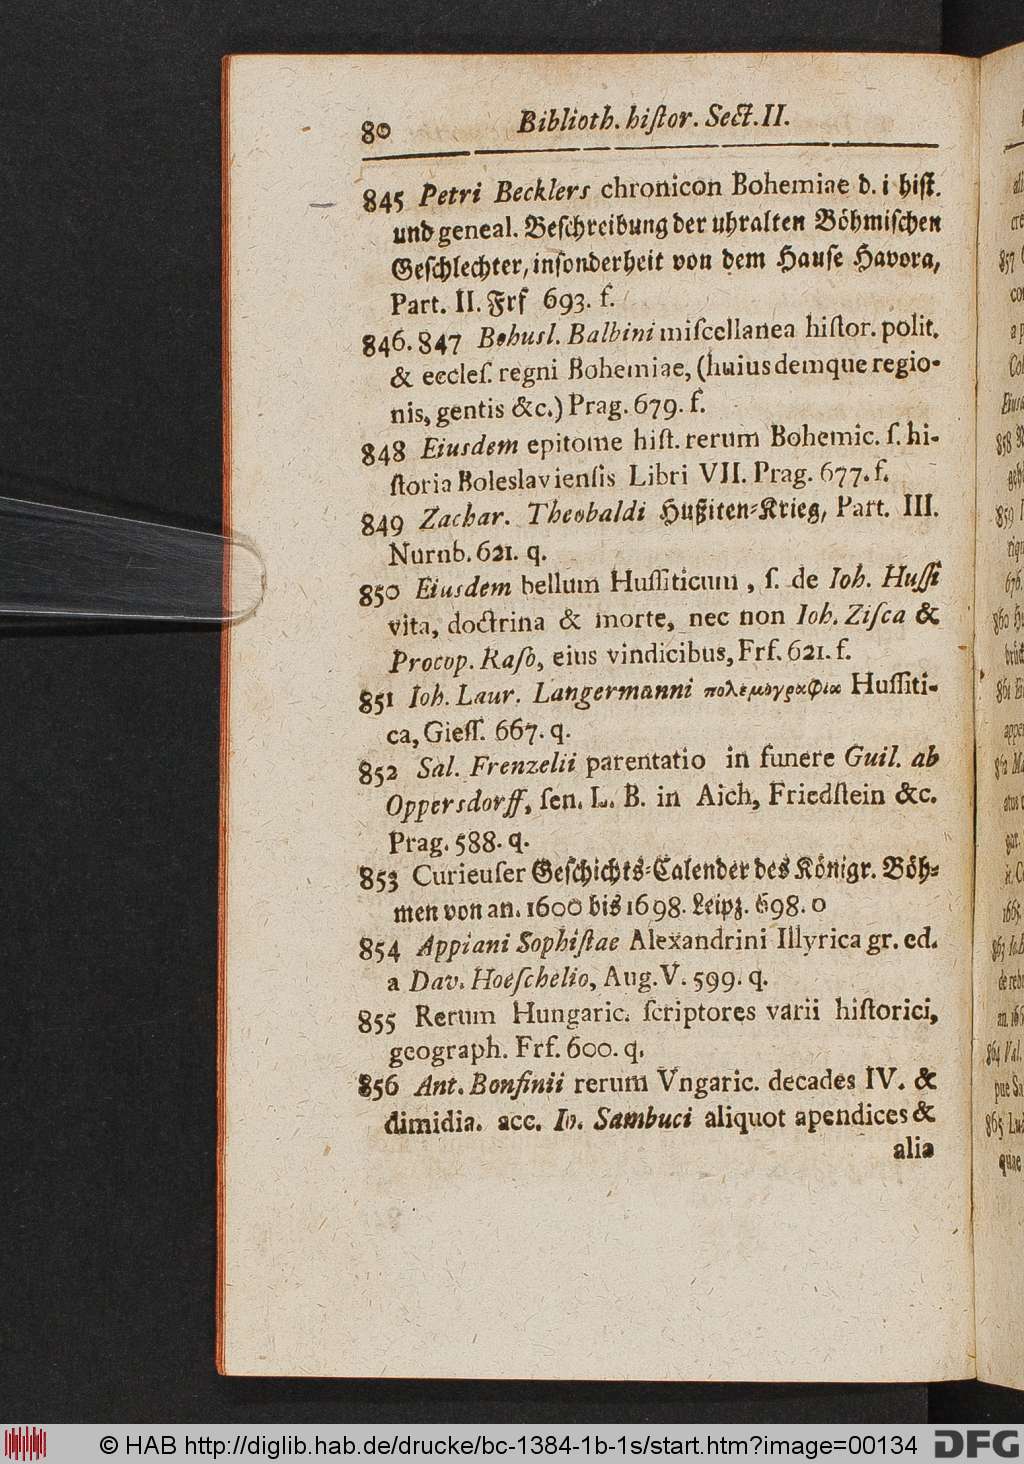 80 Biblioth. hiſtor. Sect. II.
845 Petri Becklers chronicon Bohemiae d. i hiſt.
und geneal. Beſchreibung der uhralten Böhmiſchen
Geſchlechter, inſonderheit von dem Hauſe Havora,
Part. II. Frf 693. f.
846. 847 Bohusl. Balbini miſcellanea hiſtor. polit.
& eccleſ. regni Bohemiae, (huius demque regio-
nis, gentis &c.) Prag. 679. f.
848 Eiusdem epitome hiſt. rerum Bohemic. ſ. hi-
ſtoria Boleslavienſis Libri VII. Prag. 677. f.
849 Zachar. Theobaldi Hußiten-Krieg, Part. III.
Nurnb. 621. q.
850 Eiusdem bellum Huſſiticum, ſ. de Ioh. Huſſi
vita, doctrina & morte, nec non Ioh. Ziſca &
Procop. Raſo, eius vindicibus, Frf. 621. f.
851 Ioh. Laur. Langermanni πολεμογραφια Huſſiti-
ca, Gieſſ. 667. q.
852 Sal. Frenzelii parentatio in funere Guil. ab
Oppersdorff, ſen. L. B. in Aich, Friedſtein &c.
Prag. 588. q.
853 Curieuſer Geſchichts-Calender des Königr. Böh-
men von an. 1600 bis 1698. Leipz. 698. o
854 Appiani Sophiſtae Alexandrini Illyrica gr. ed.
a Dav. Hoeſchelio, Aug. V. 599. q.
855 Rerum Hungaric. ſcriptores varii hiſtorici,
geograph. Frf. 600. q.
856 Ant. Bonfinii rerum Vngaric. decades IV. &
dimidia. acc. Io. Sambuci aliquot apendices &
alia
© HAB http://diglib.hab.de/drucke/bc-1384-1b-1s/start.htm?image=00134
DFG